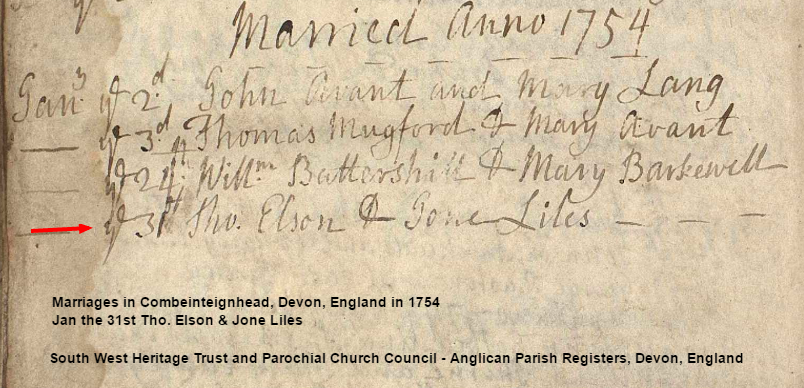 Married Anno 1754
Janry ye 2d. John Avant and Mary Lang
— ye 3d. Thomas Mugford & Mary Avant
— ye 24th, Willm Battershill & Mary Barkewell
— ye 31st Tho. Elson & Jone Liles — — —
Marriages in Combeinteignhead, Devon, England in 1754
Jan the 31st Tho. Elson & Jone Liles
South West Heritage Trust and Parochial Church Council - Anglican Parish Registers, Devon, England